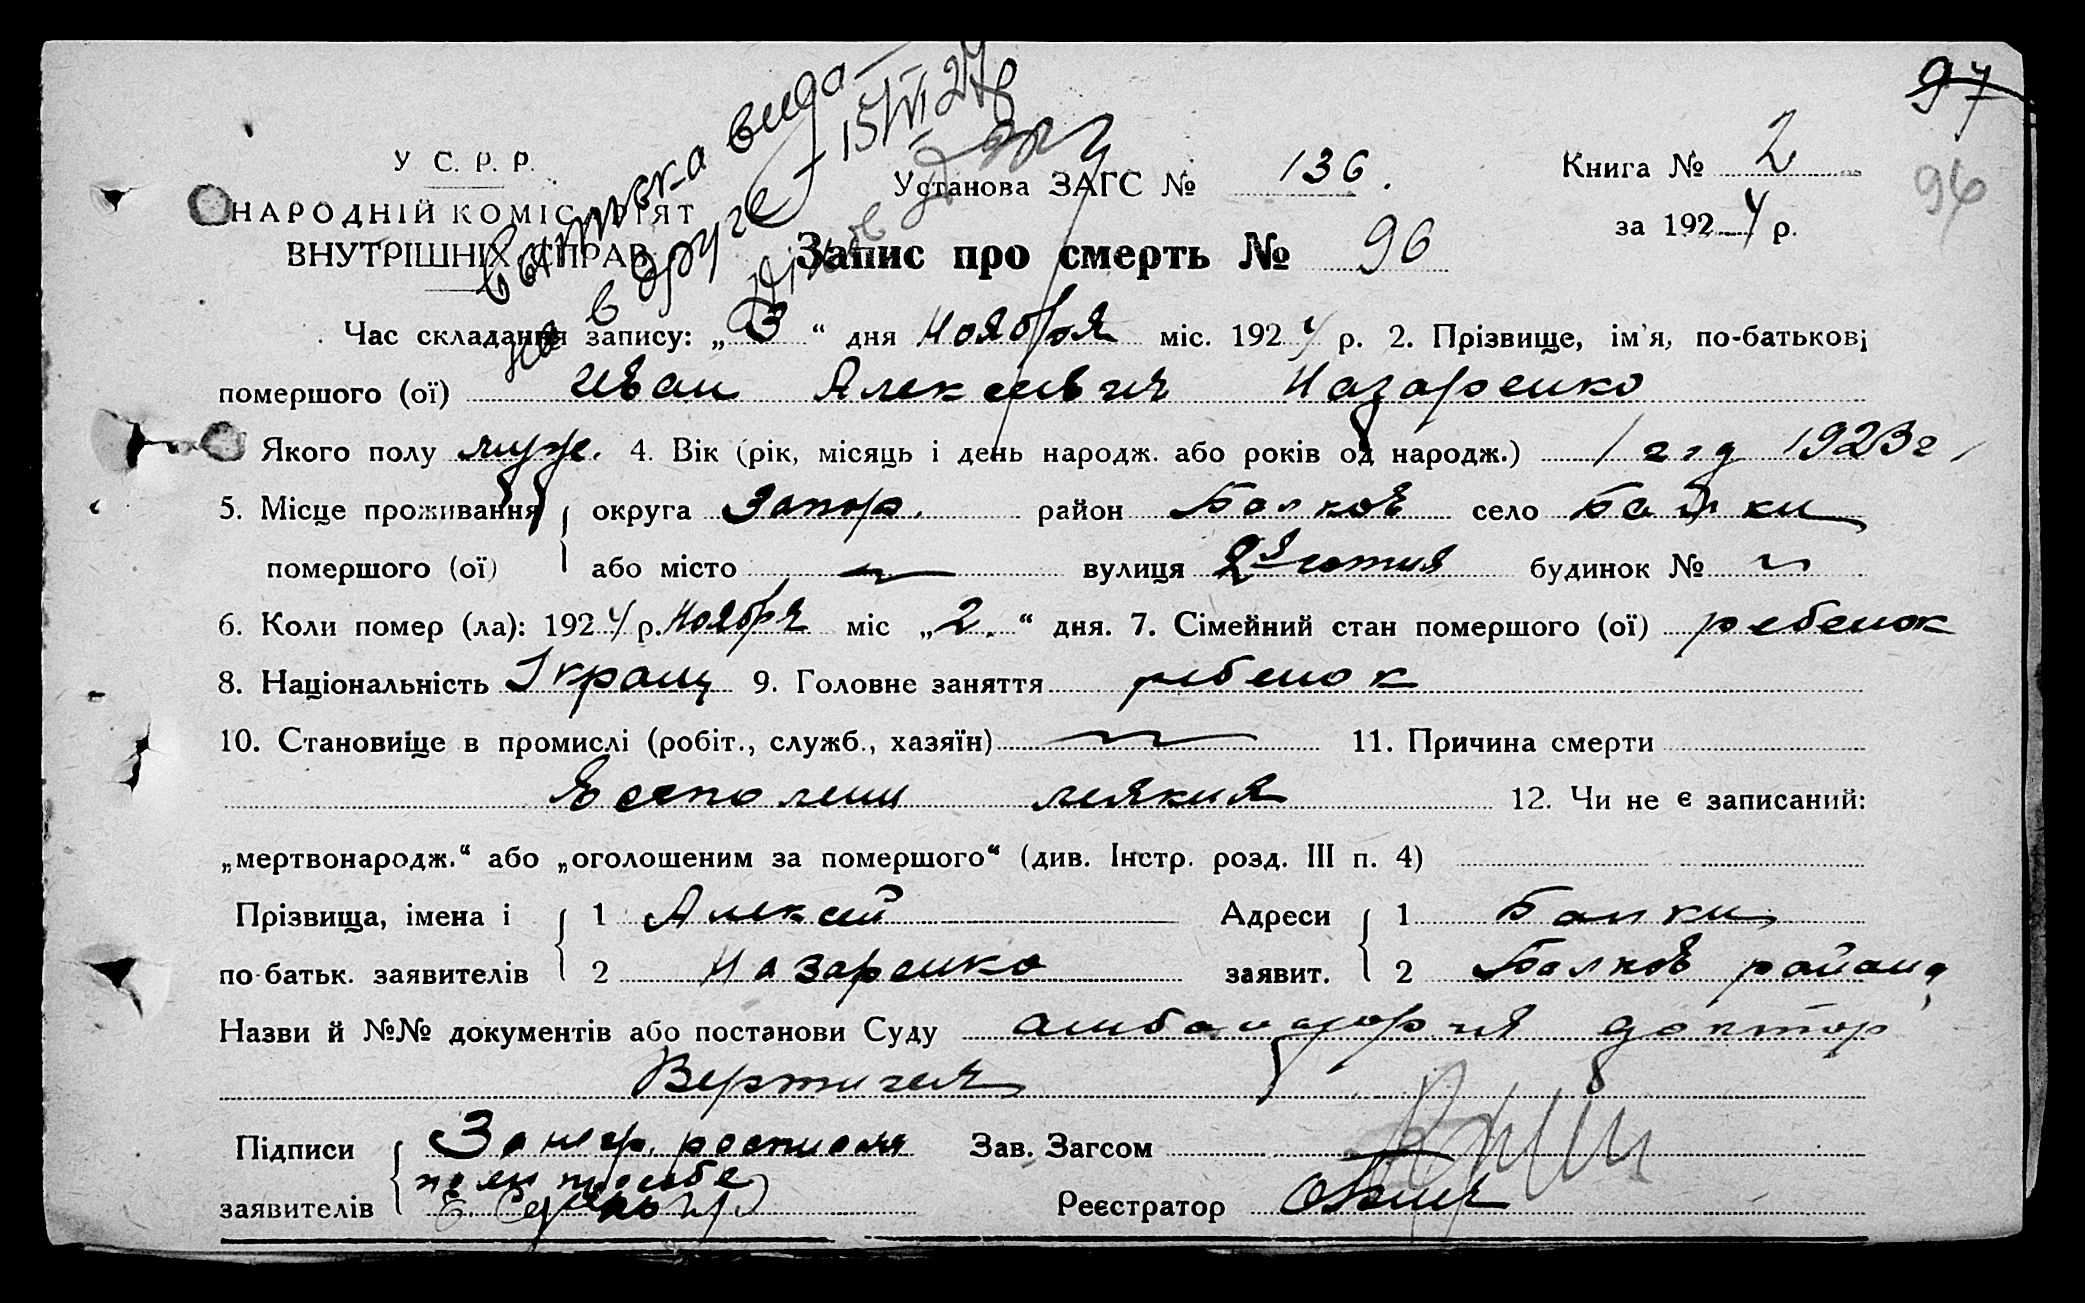 97
96
Выписка выда
на в друге 15/VI 27 г
У С. Р. Р.
НАРОДНІЙ КОМІСАРІЯТ
ВНУТРІШНІХ СПРАВ
Установа ЗАГС № 136.
Книга № 2
за 1924 р.
Запис про смерть № 96
Час складання запису: „3“ дня Ноября міс. 1924 р. 2. Прізвище, ім'я, по-батькові
помершого (ої) Иван Алексеевич Назаренко
Якого полу муж. 4. Вік (рік, місяць і день народж. або років од народж.) 1 год 1923 г
5. Місце проживання округа Запор. район Балков село Балки
помершого (ої) або місто вулиця 2я сотня будинок №
6. Коли помер (ла): 1924 р. Ноября міс „2.“ дня. 7. Сімейний стан помершого (ої) ребенок
8. Національність Украин 9. Головне заняття ребенок
10. Становище в промислі (робіт., служб., хазяїн) 11. Причина смерти
12. Чи не є записаний:
„мертвонародж.“ або „оголошеним за помершого“ (див. Інстр. розд. III п. 4)
Прізвища, імена і 1 Алексей Адреси 1 Балки
по-батьк. заявителів 2 Назаренко заявит. 2 Балков района
Назви й №№ документів або постанови Суду амбулатория доктор
Підписи За негр. росписался Зав. Загсом
по его просьбе
заявителів Реєстратор